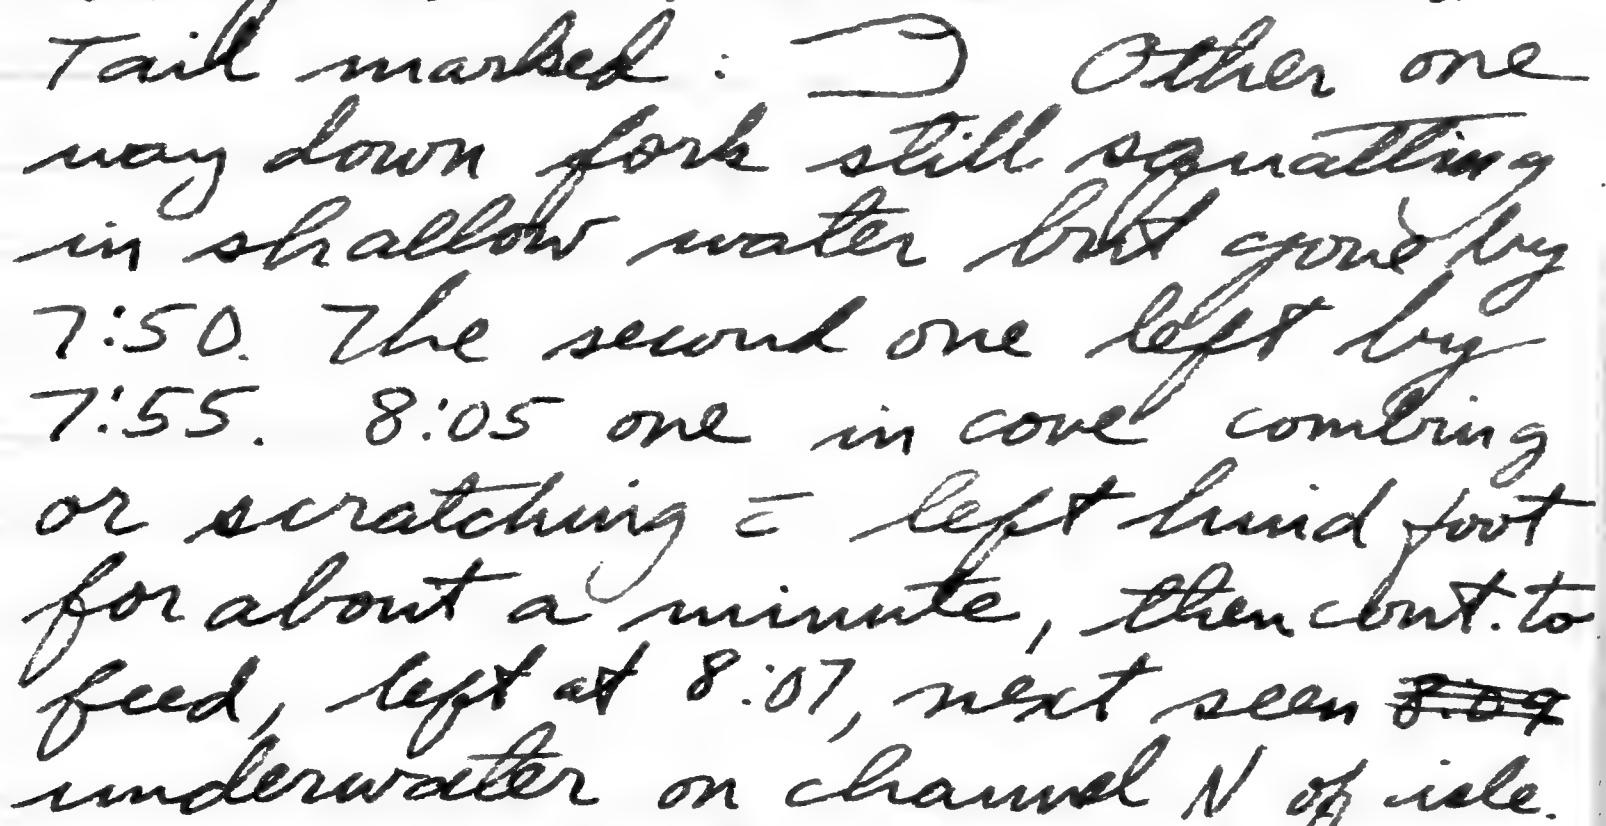 Tail marked : Other one
way down fork still squatting
in shallow water but gone by
7:50. The second one left by
7:55. 8:05 one in cove combing
or scratching c̄ left hind foot
for about a minute, then cont. to
feed, left at 8:07, next seen 8:09
underwater on channel N of isle.